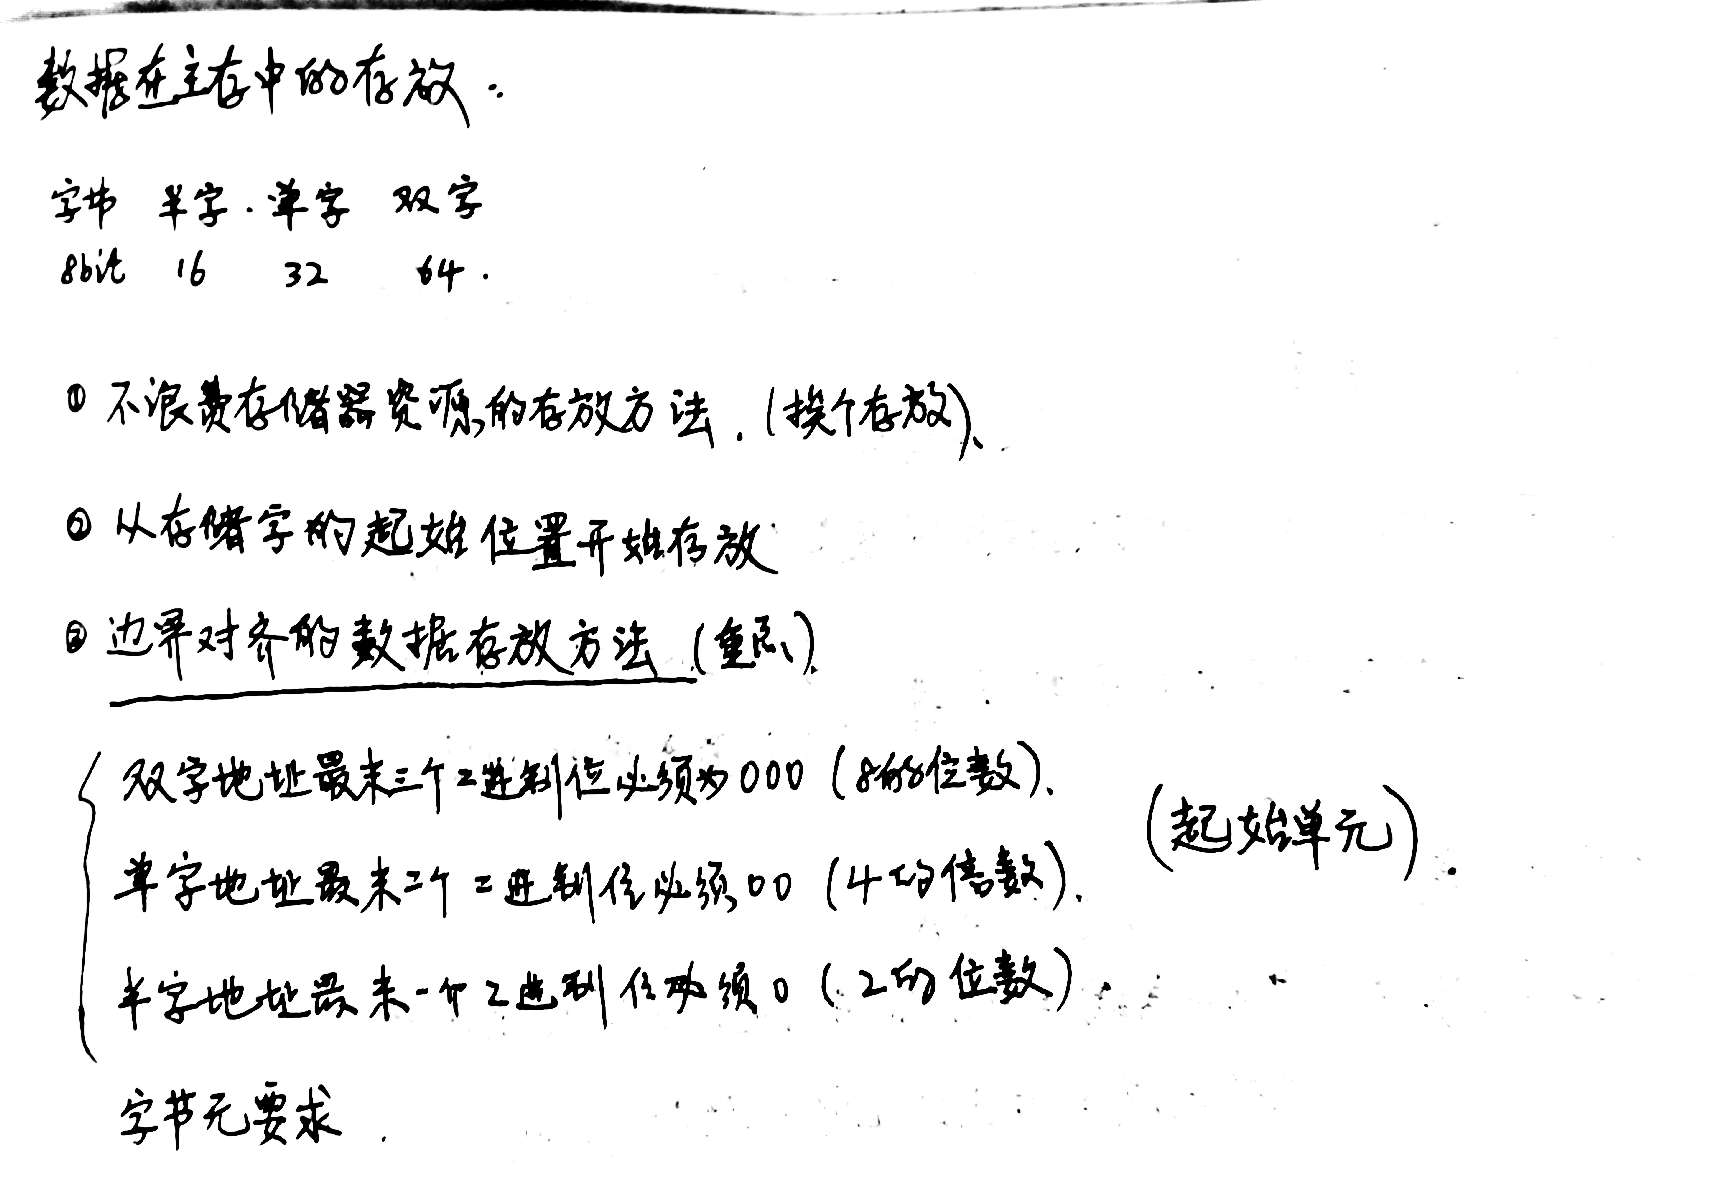 数据在主存中的存放.
字节 半字. 单字 双字
8bit 16 32 64.
① 不浪费存储器资源的存放方法.(挨个存放)、
② 从存储字的起始位置开始存放
③ 边界对齐的数据存放方法 (重点).
双字地址最末三个二进制位必须为000 (8的位数).
单字地址最末二个二进制位必须00 (4的倍数).
(起始单元).
半字地址最末一个2进制位必须0 (2的位数).
字节无要求.